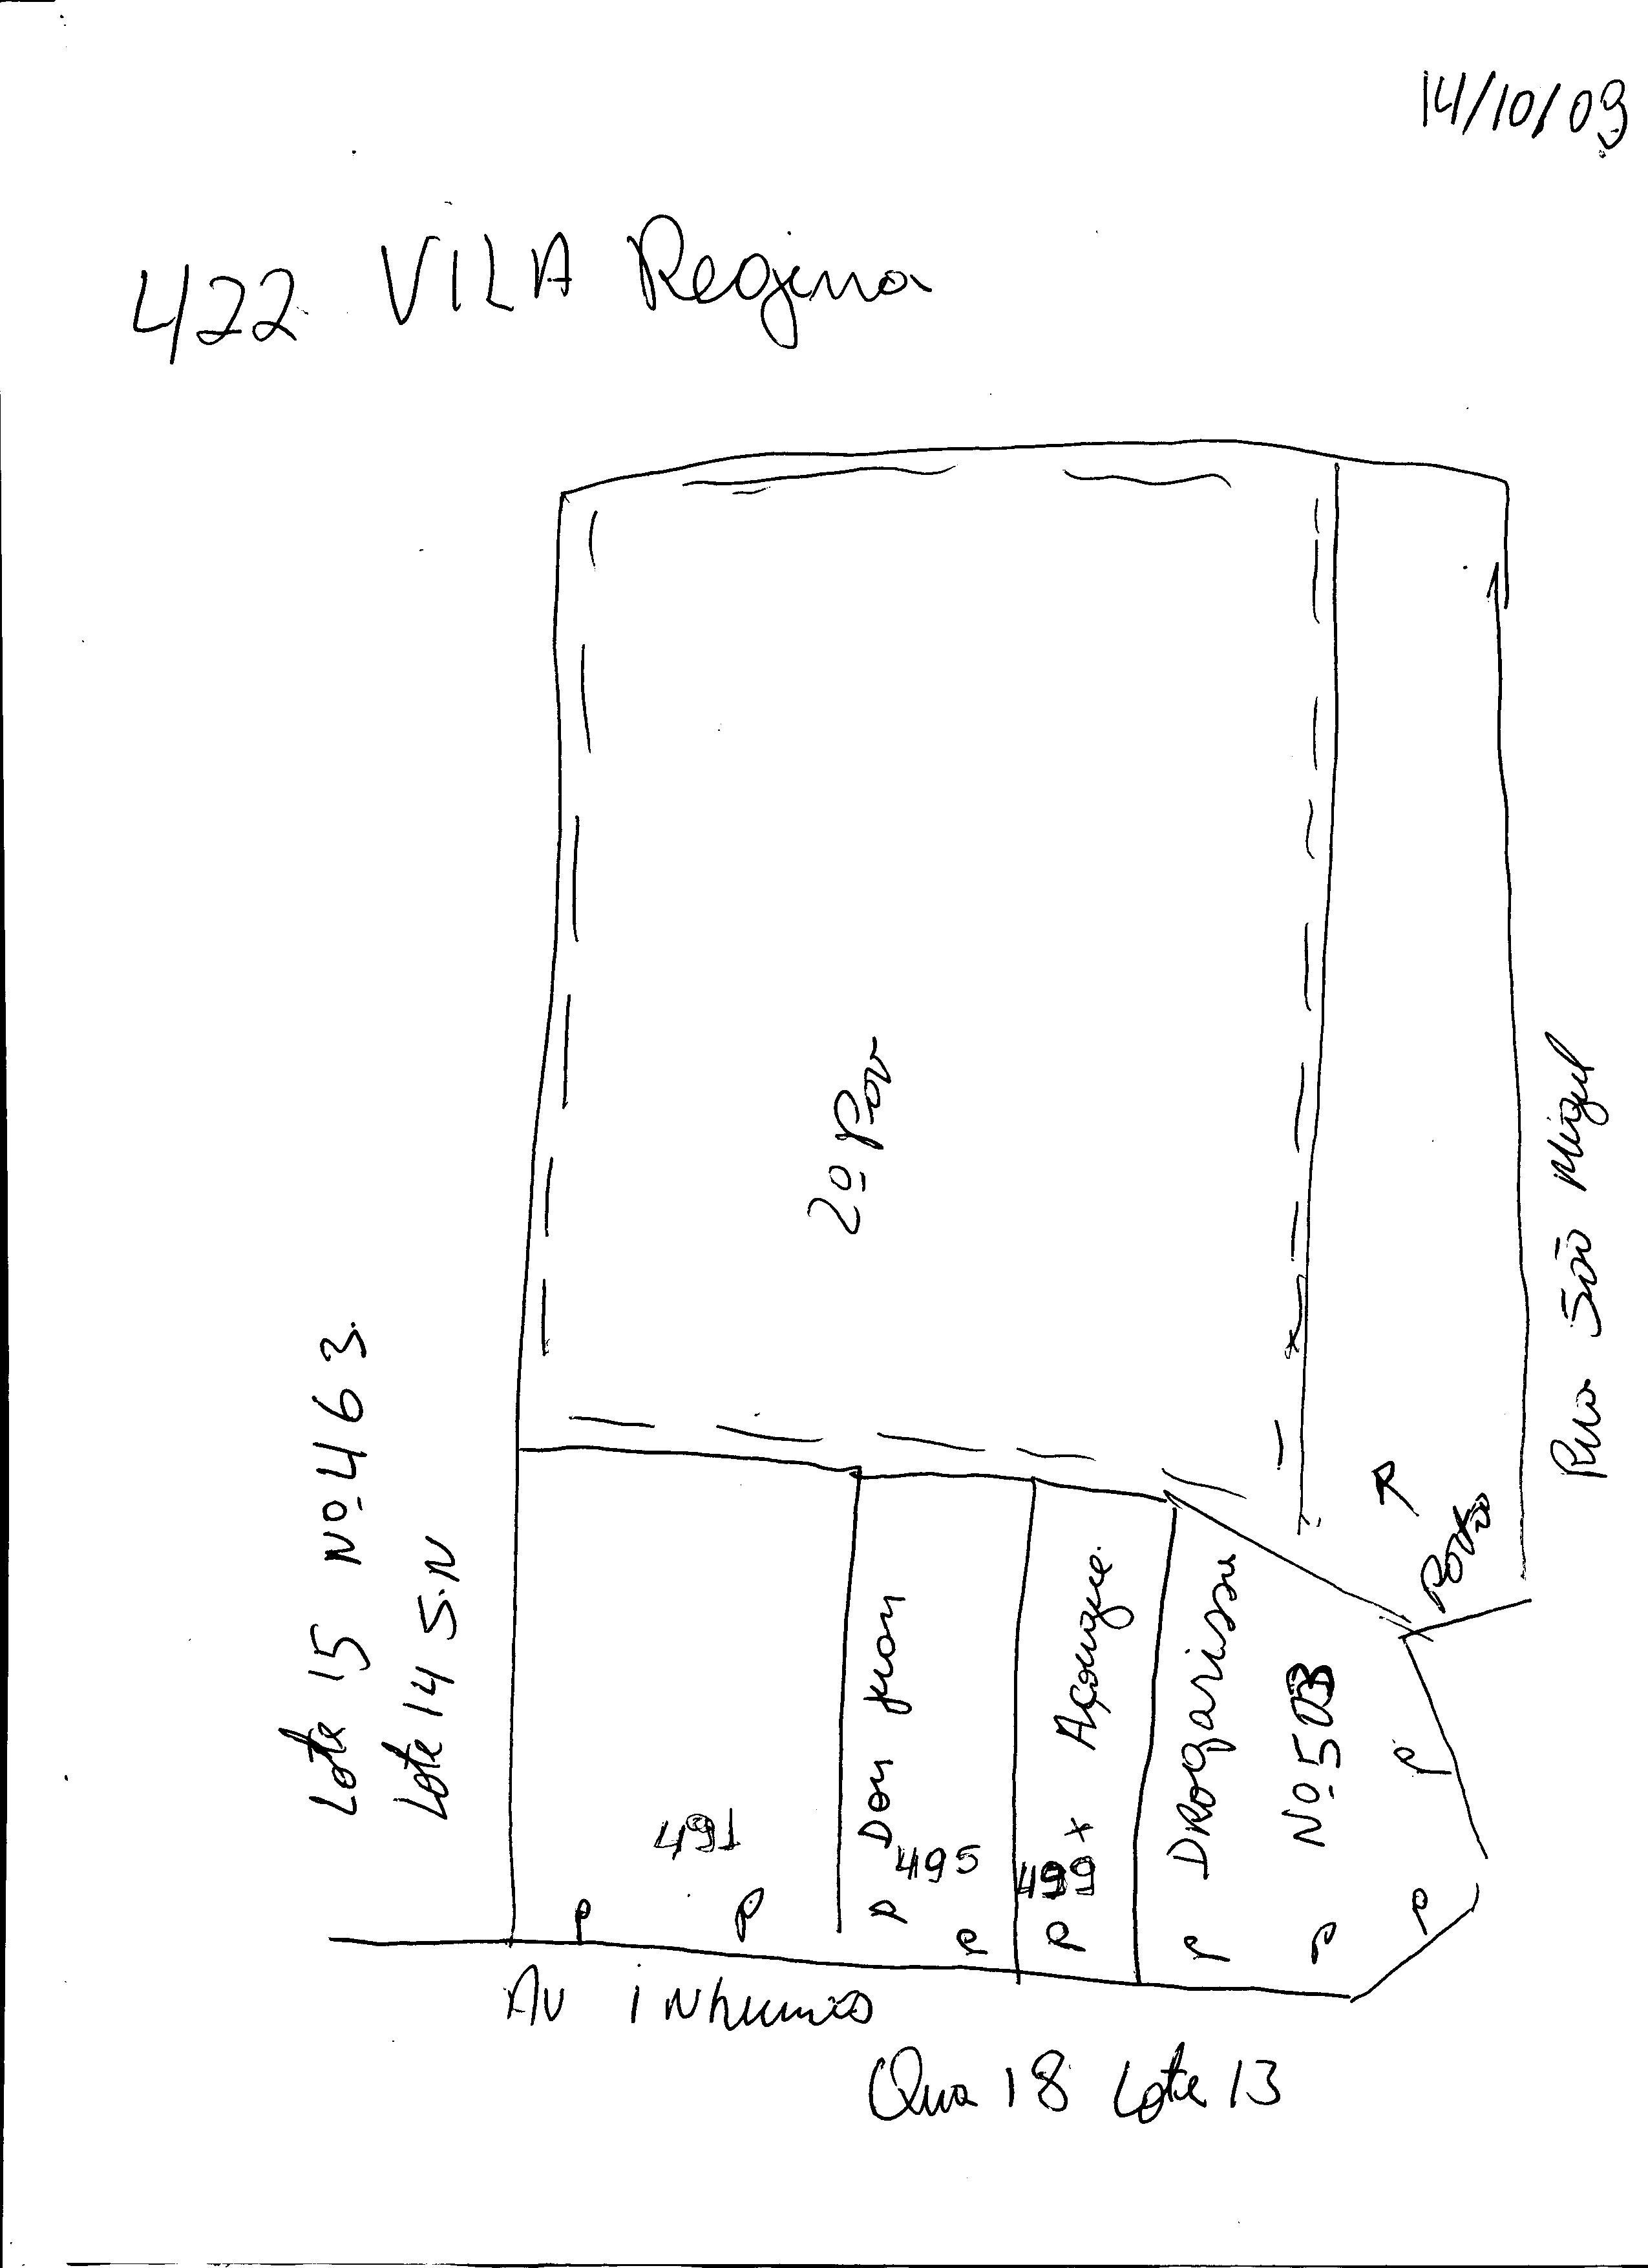 14/10/09
422 VILA Regina
2º Pav
Rua São Miguel
Lote 15 Nº 463
Lote 14 S.N
Portão
491
Don Juan
495
Açougue
499 x
DROgarissa
Nº 503
P P P P P P P P P
Av inhumas
Qua 18 Lote 13